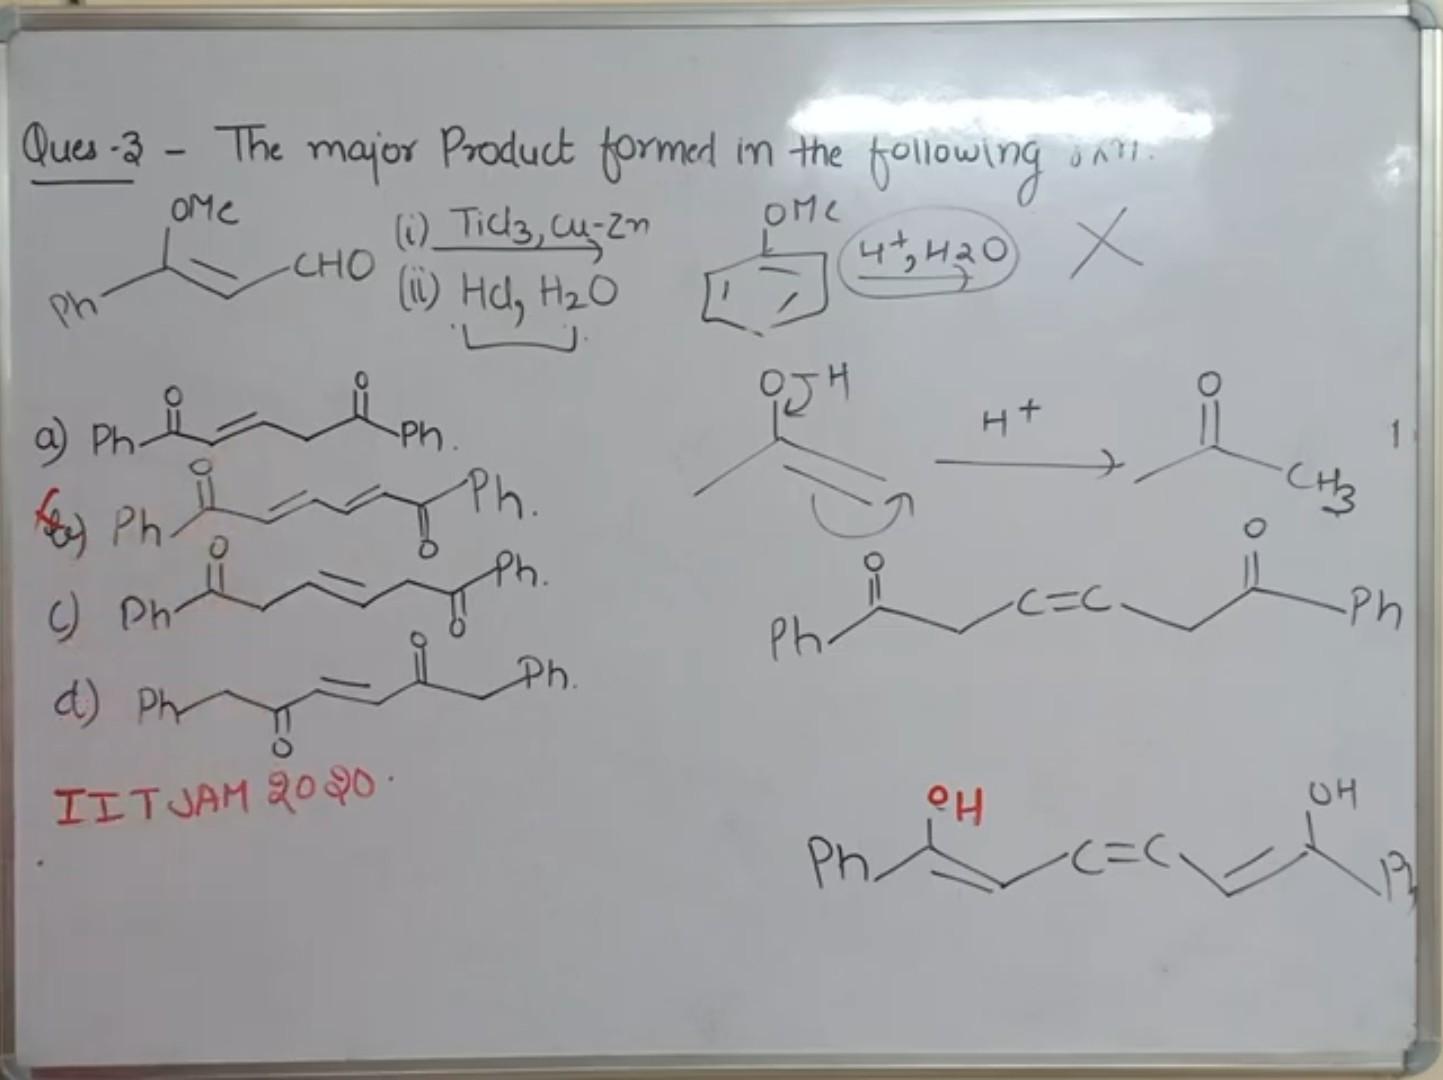 Ques-3 - The major Product formed in the following
OMe
Ph CHO
(i) TiCl3, Cu-Zn
(ii) HCl, H2O
OMe
H+, H2O
a) Ph O O Ph.
b) Ph O O Ph.
c) Ph O O Ph.
d) Ph O O Ph.
IIT JAM 2020.
O H
H+
O
CH3
O O
Ph C=C Ph
OH OH
Ph C=C Ph